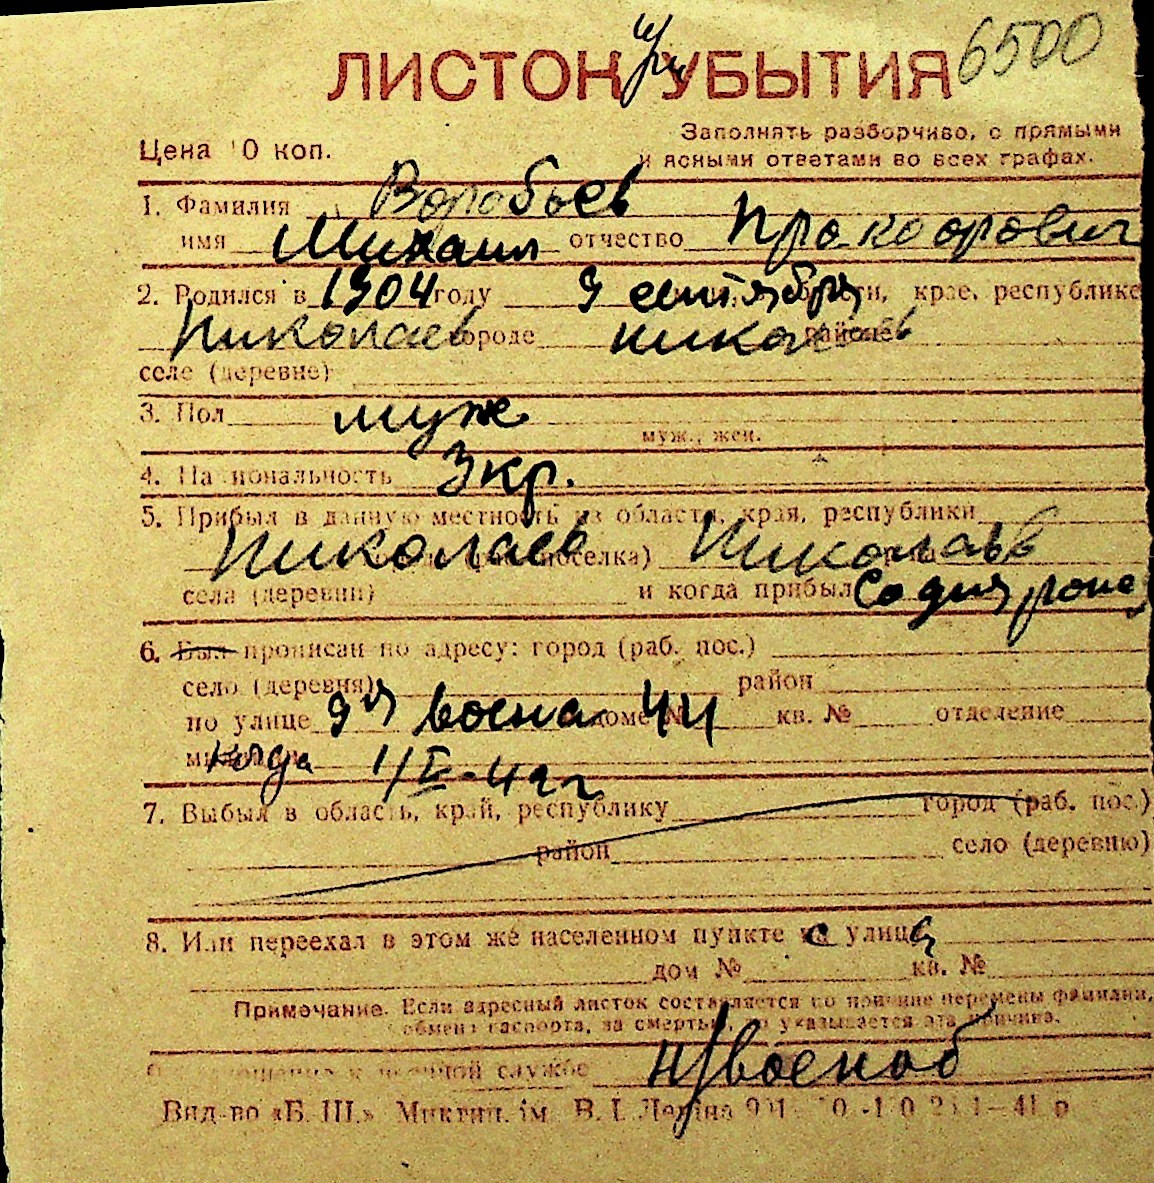 6500
ЛИСТОК УБЫТИЯ
Заполнять разборчиво, с прямыми
Цена 10 коп.
и ясными ответами во всех графах.
1. Фамилия Воробьев
имя Михаил отчество
2. Родился в 1904 году 9 сентября области, крае, республике
Николаев городе Николаев районе
селе (деревне)
3. Пол муж
муж., жен.
4. Национальность Укр.
5. Прибыл в данную местность из области, края, республики
Николаев поселка) Николаев
села (деревни) и когда прибыл
6. Был прописан по адресу: город (раб. пос.)
село (деревня) район
по улице 9я военная доме № 44 кв. № отделение
милиции когда
7. Выбыл в область, край, республику город (раб. пос.)
район село (деревню)
8. Или переехал в этом же населенном пункте с улицы
дом № кв. №
Примечание. Если адресный листок составляется по причине перемены фамилии,
обмена паспорта, за смертью, то указывается эта причина.
Отношение к военной службе н/военоб
Вид-во «Б. Ш.» ім. В. І. Леніна